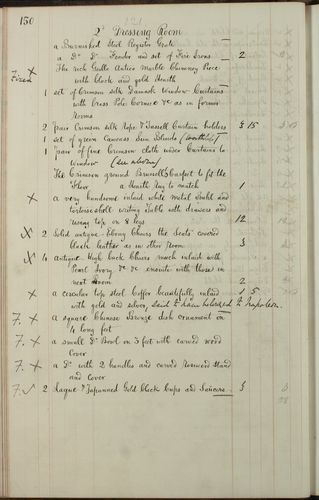 150
121
2d Dressing Room
a Burnished Steel Register Grate
a Do Do Fender and set of Fire Irons 2
The rich Gallo Antico Marble Chimney Piece
Fixed X with black and gold Hearth
1 set of Crimson silk Damask Window Curtains
with Brass Pole Cornice &c as in former
Rooms
2 pair Crimson silk Rope & Tassell Curtain holders 15
1 set of green Canvas Sun Blinds
1 pair of fine Crimson cloth under Curtains to
Window
The Crimson ground Brussells Carpet to fit the
Floor a Hearth Rug to match 1
X a very handsome inlaid white metal Buhl and
tortoise shell writing Table with drawers and
rising top on 8 legs 12
X 2 Solid antique Ebony Chairs the Seats covered
black leather as in other Room
X 4 antique High back Chairs much inlaid with
Pearl Ivory &c &c ensuite with those in
next Room 2
X a circular top steel Coffer beautifully inlaid 1 5
with gold and silver, said to have belonged to Napoleon
F. X a square Chinese Bronze dish ornament on
4 long feet
F. X a small Do Bowl on 3 feet with carved wood
Cover
F. X a Do with 2 handles and carved Rosewood stand
and Cover
F. 2 Japanned Gold Black Cups and Saucers